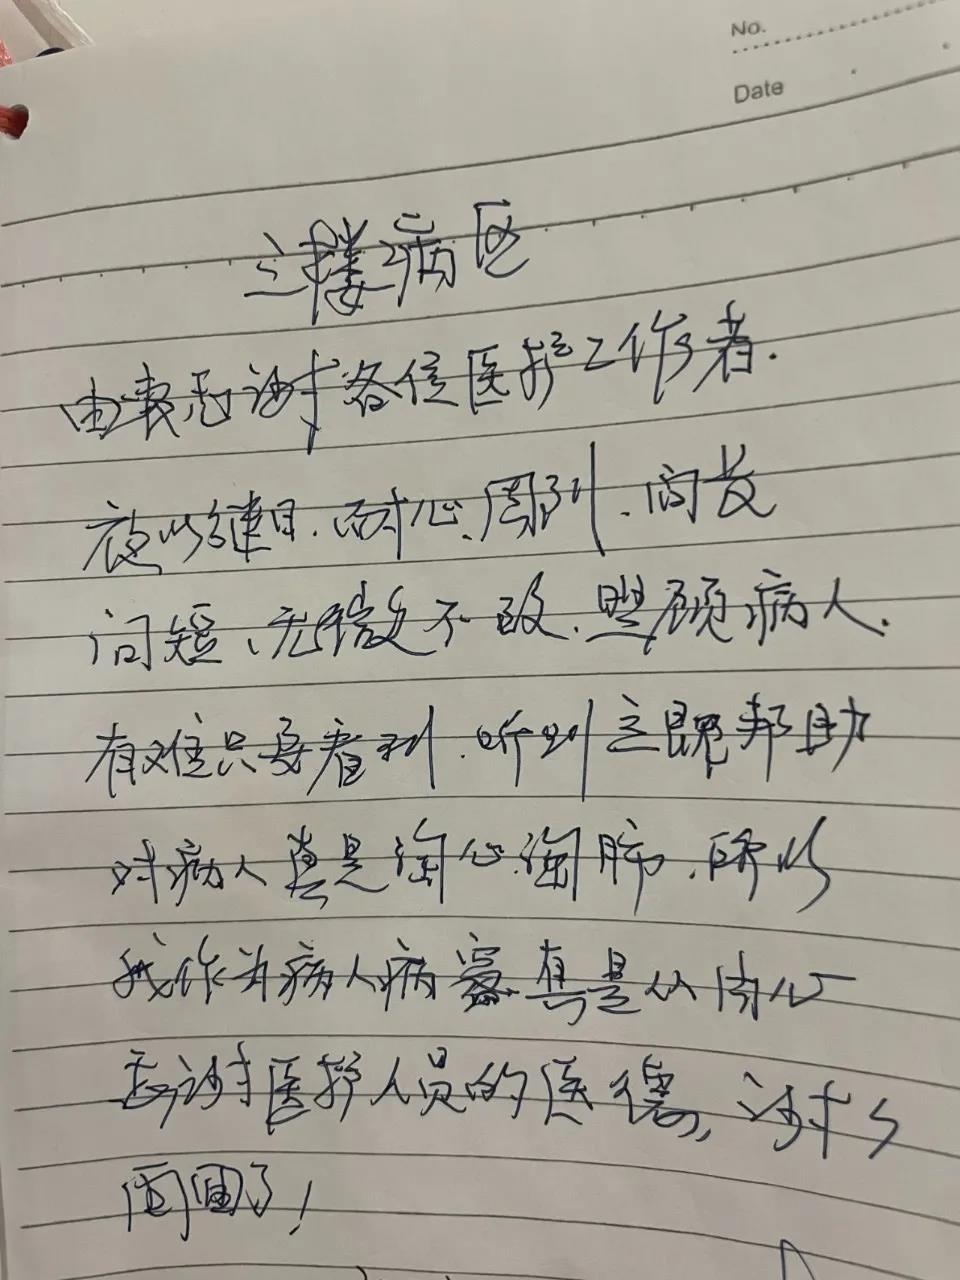 No.
Date
三楼病区
由衷感谢各位医护工作者.
夜以继日.耐心.周到.问长
问短、无微不至.照顾病人.
有难只要看到.听到立即帮助
对病人真是掏心掏肺.所以
我作为病人病家真是从内心
感谢医护人员的医德,谢谢